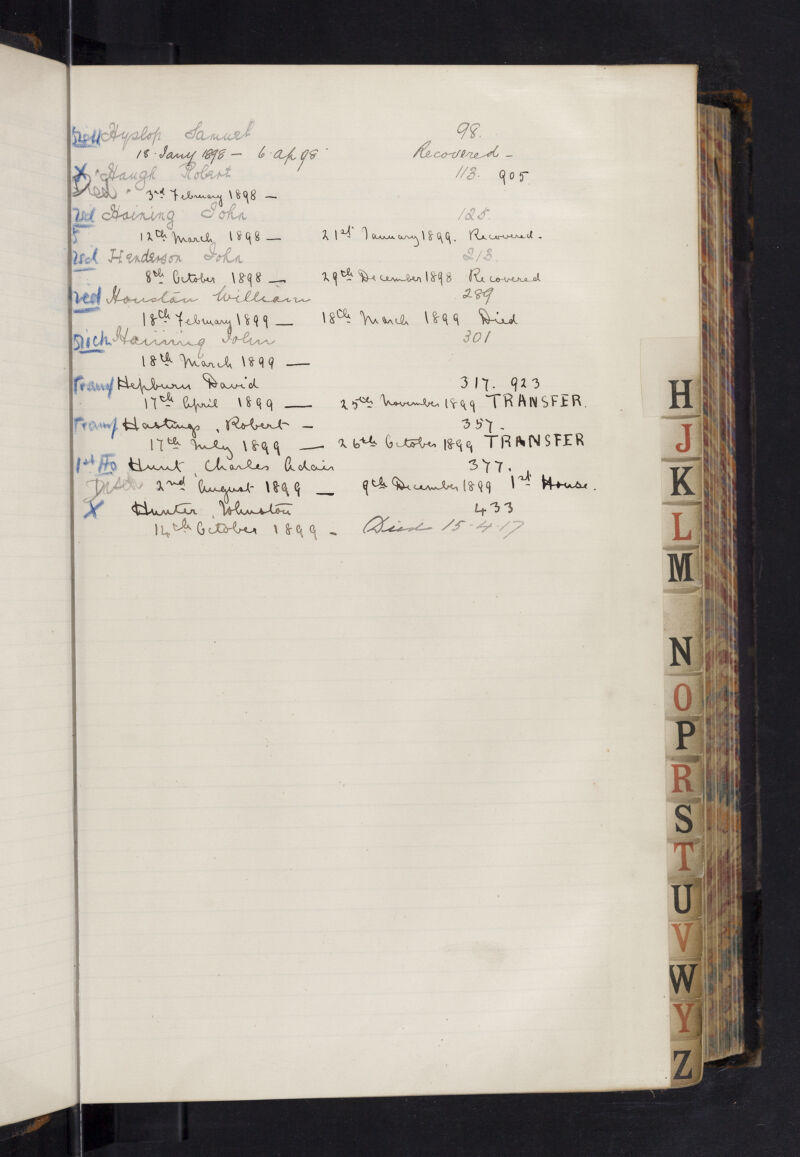 Hyslop Samuel 98.
18 Jany 1898 — 6 Ap 98 Recovered –
X Haugh Robert 113. 905
Died 3rd February 1898 —
Haining John 125.
12th March 1898 — 21st January 1899. Recovered.
Henderson John 213.
8th October 1898 — 29th December 1898 Recovered
Houstan William 289
18th February 1899 — 18th March 1899 Died
Hanning John 301
18th March 1899 —
Transf Hepburn David 317. 923
17th April 1899 — 25th November 1899 TRANSFER.
Transf Hastings, Robert – 357.
17th July 1899 — 26th October 1899 TRANSFER
1st Ho Hunt, Charles Adair 377.
2nd August 1899 — 9th December 1899 1st House.
X Hunter, Johnston 433
14th October 1899 – Died 15.4.17
H
J
K
L
M
N
O
P
R
S
T
U
V
W
Y
Z